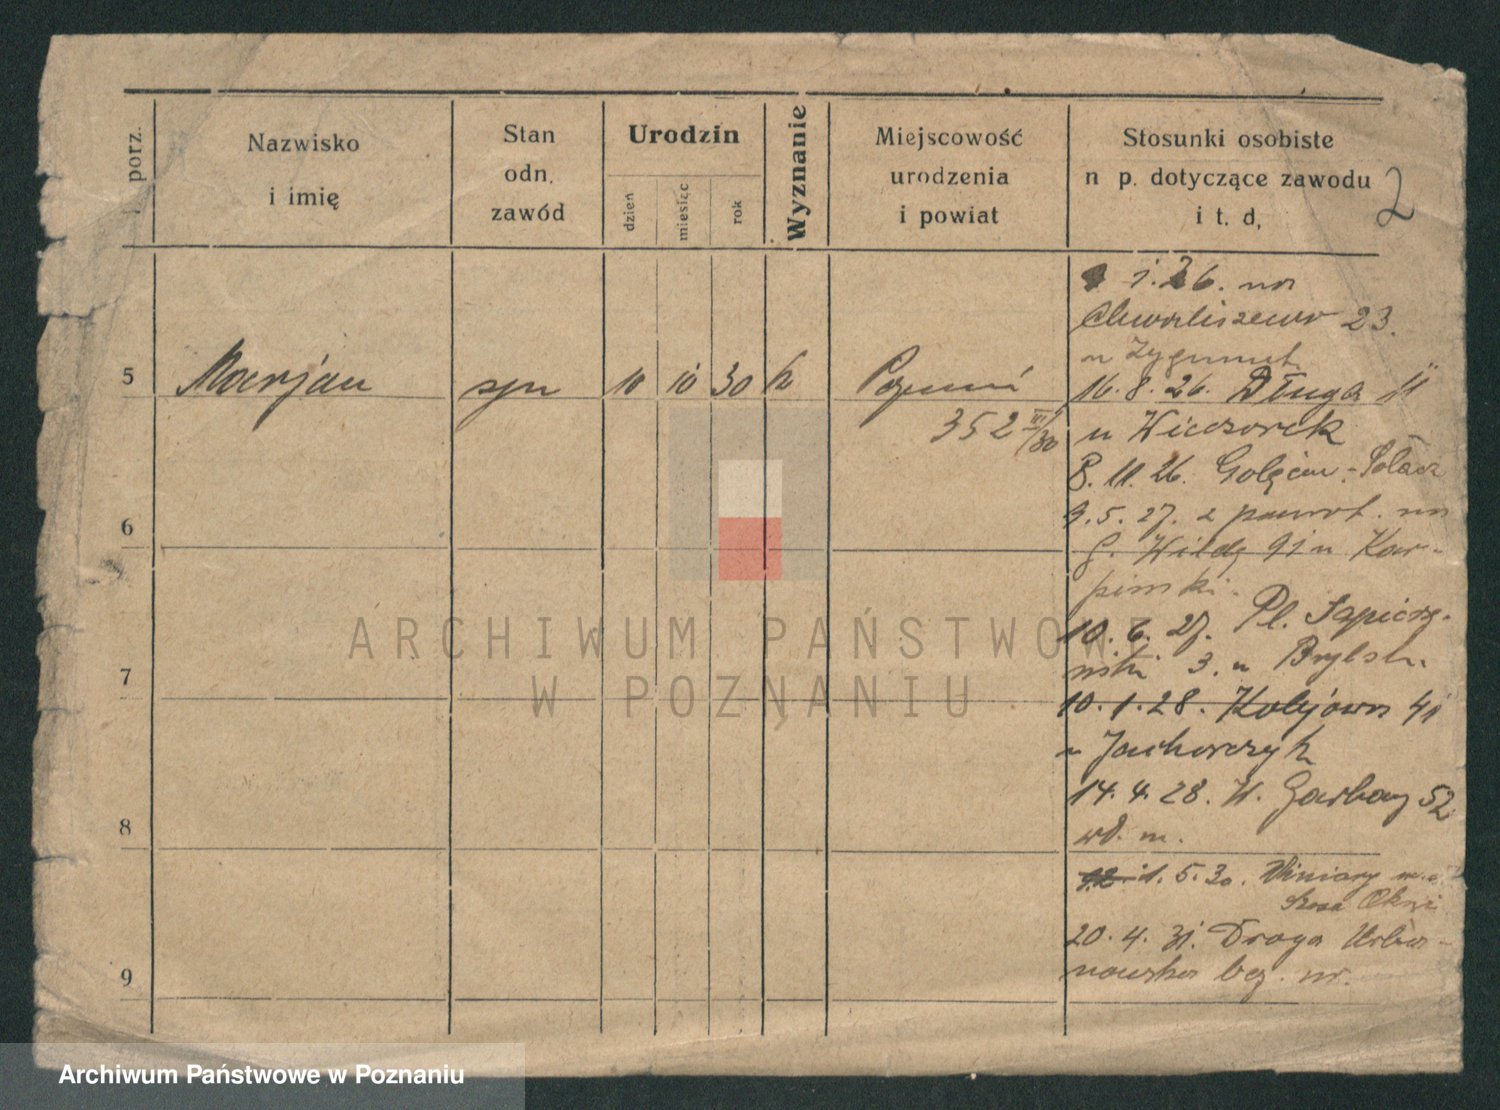 porz.
Nazwisko
i imię
Stan
odn.
zawód
Urodzin
dzień
miesiąc
rok
Wyznanie
Miejscowość
urodzenia
i powiat
Stosunki osobiste
n p. dotyczące zawodu
i t. d,
2
1. 26. na
Chwaliszewo 23.
u Zygmunt
5 Marjan syn 10 10 30 k Poznań
16. 8. 26. Długa 11
352 III/30
u Wieczorek
8. 11. 26. Golęcin
6
9. 5. 27. z powrot. na
G. Wildę 91 u Kar-
pinski.
10. 6. 27. Pl. Sapieży-
ński 3. u
7
10. 1. 28. Kolejowa 41
u Jachorczyk
14. 4. 28. W. Garbary 52
8
wd. m.
1. 5. 30. Winiary
20. 4. 31. Droga Urba-
9
nowska bez. nr.
ARCHIWUM PAŃSTWOWE
W POZNANIU
Archiwum Państwowe w Poznaniu